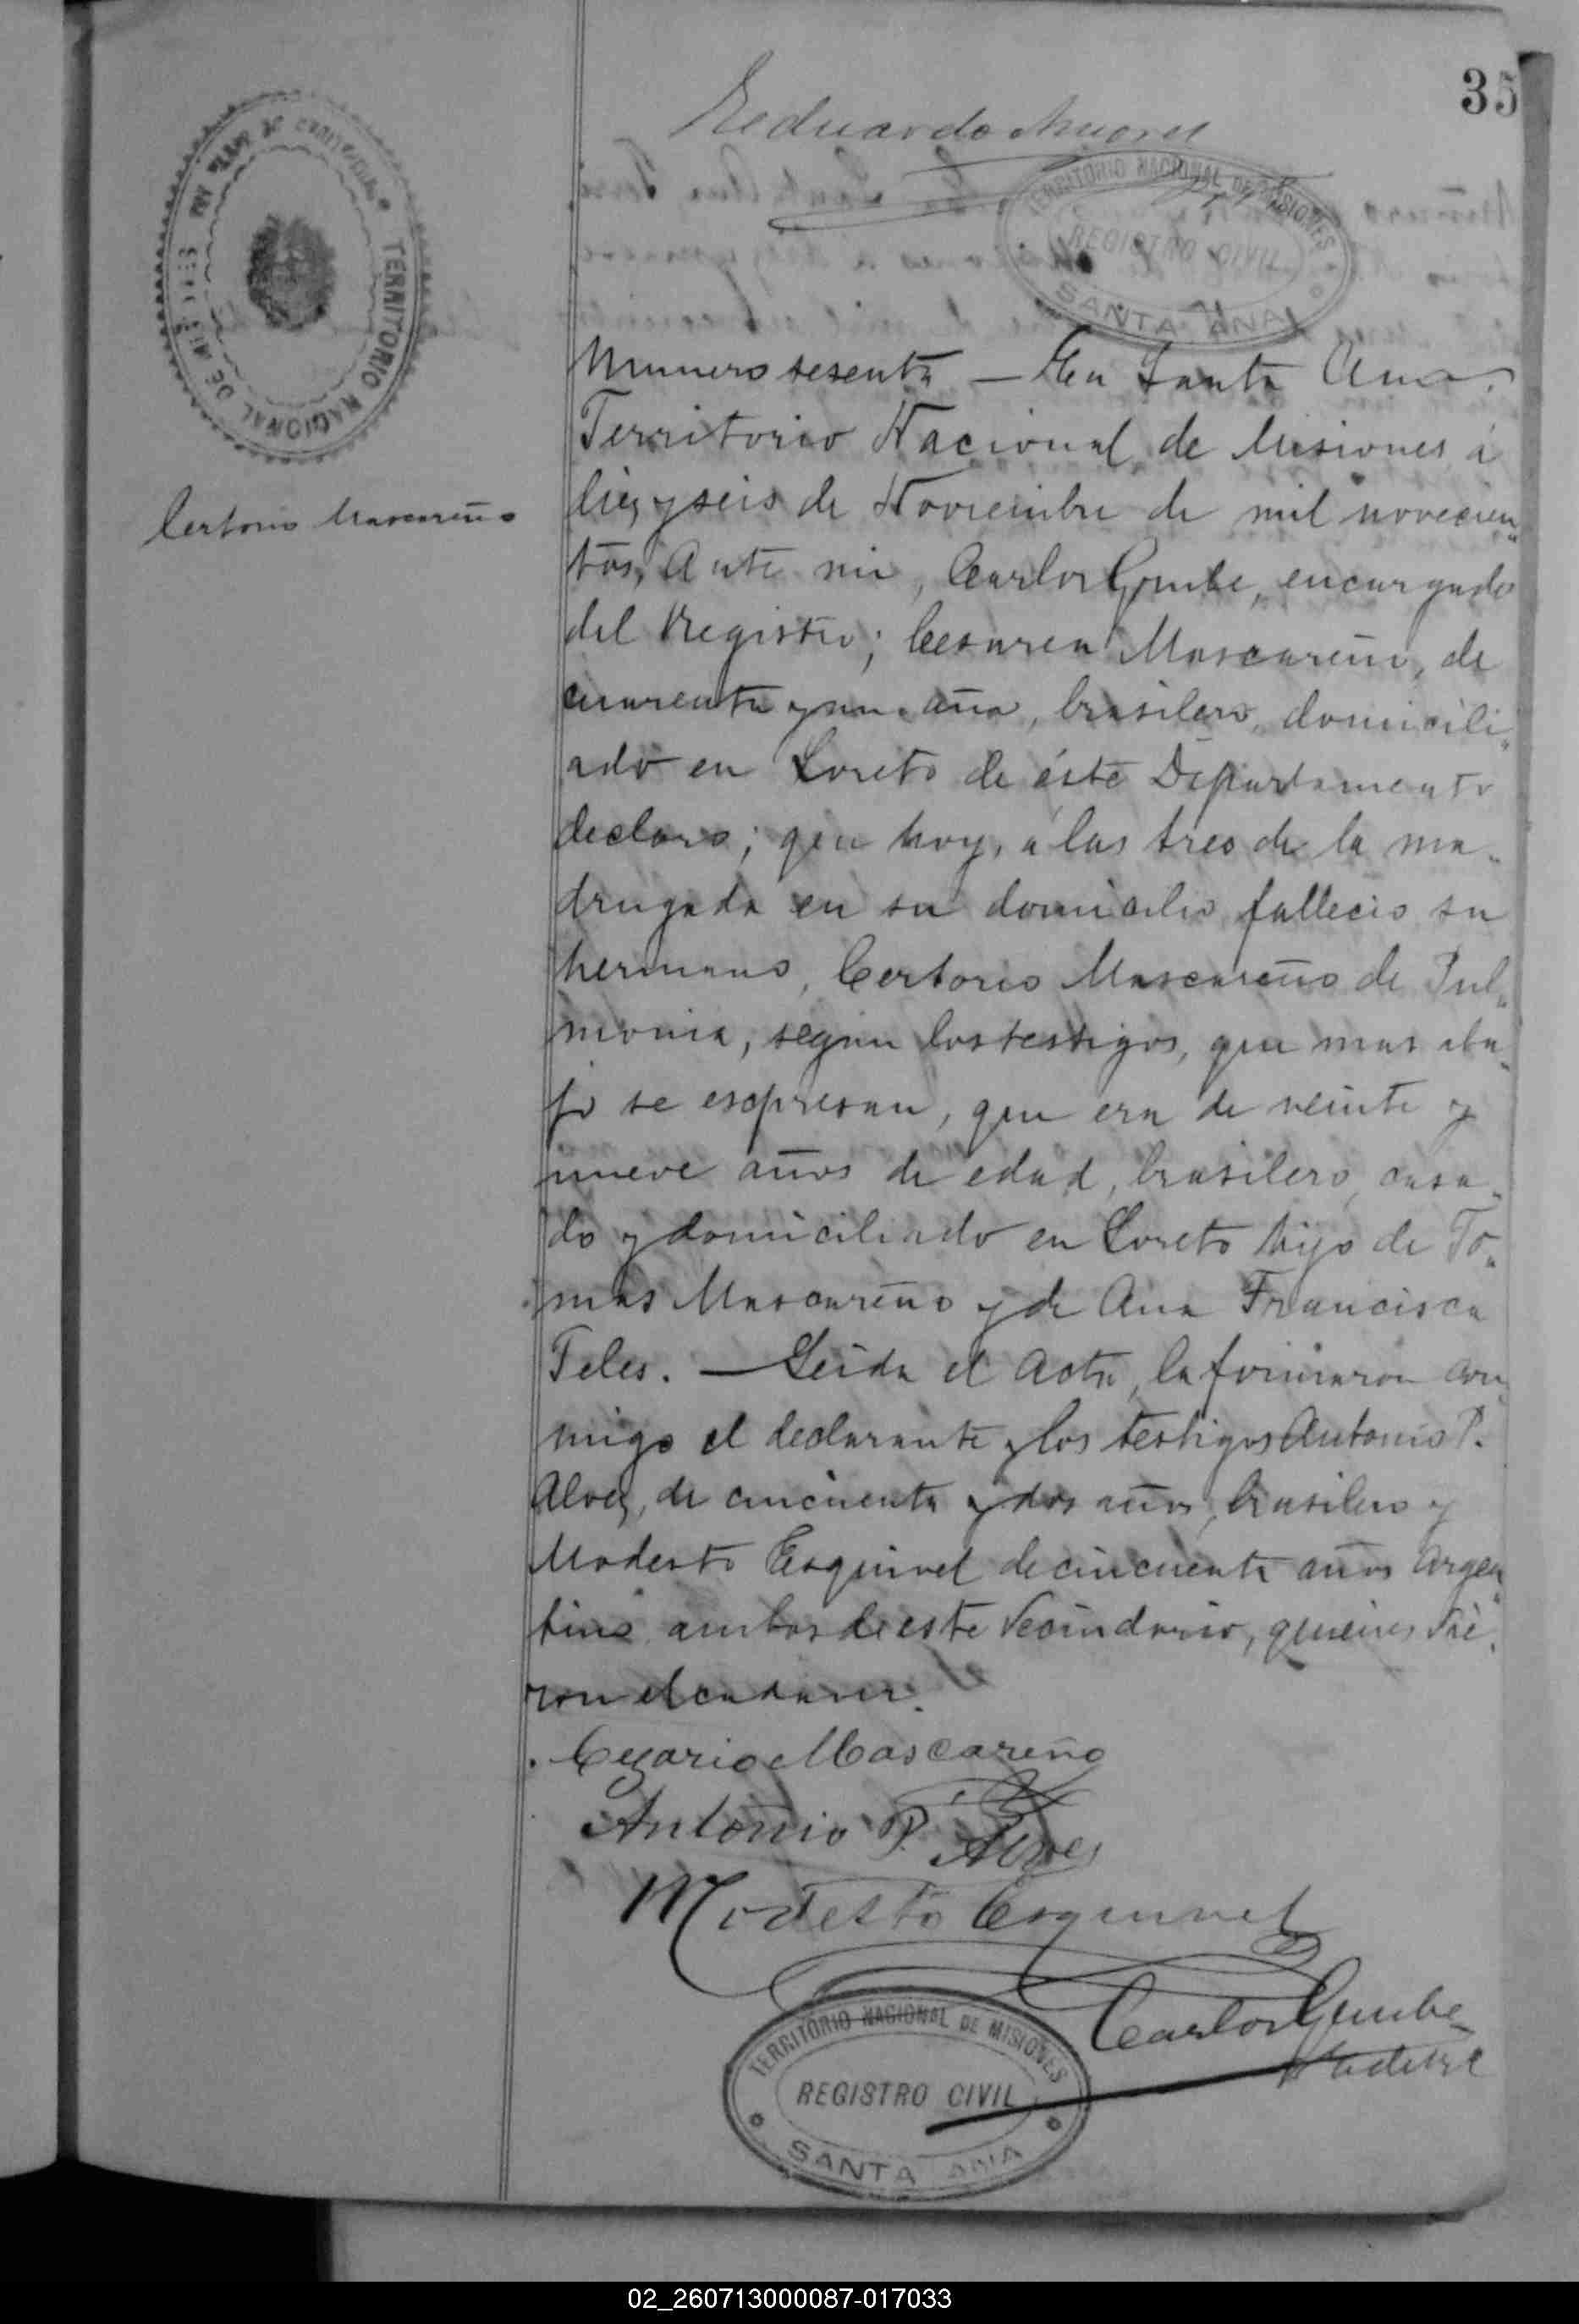 35
Eduardo
TERRITORIO NACIONAL DE MISIONES
REGISTRO CIVIL
SANTA ANA
TERRITORIO NACIONAL DE MISIONES
Certorio Mascareño
Numero sesenta — En Santa Ana.
Territorio Nacional de Misiones á
diez y seis de Noviembre de mil novecien„
tos, Ante mi, Carlos Gembe, encargado
del Registro; Cesareo Mascareño, de
cuarenta y un año, brasilero, domicili„
ado en Loreto de éste Departamento
declaro; que hoy, a las tres de la ma„
drugada en su domicilio fallecio su
hermano, Certorio Mascareño de Pul„
monia, segun los testigos, que mas aba„
jo se espresan, que era de veinte y
nueve años de edad, brasilero, casa„
do y domiciliado en Loreto hijo de To„
mas Mascareño y de Ana Francisca
Teles. — Leida el Acta, la firmaron con„
migo el declarante y los testigos Antonio P.
Alvez, de cincuenta y dos años, brasilero y
Modesto Esquivel de cincuenta años Argen„
tino ambos de este Vecindario, quienes vie„
ron el cadaver.
Cezario Mascareño
Antonio P. Alves
Modesto Esquivel
Carlos Gembe
TERRITORIO NACIONAL DE MISIONES
REGISTRO CIVIL
SANTA ANA
02_260713000087-017033